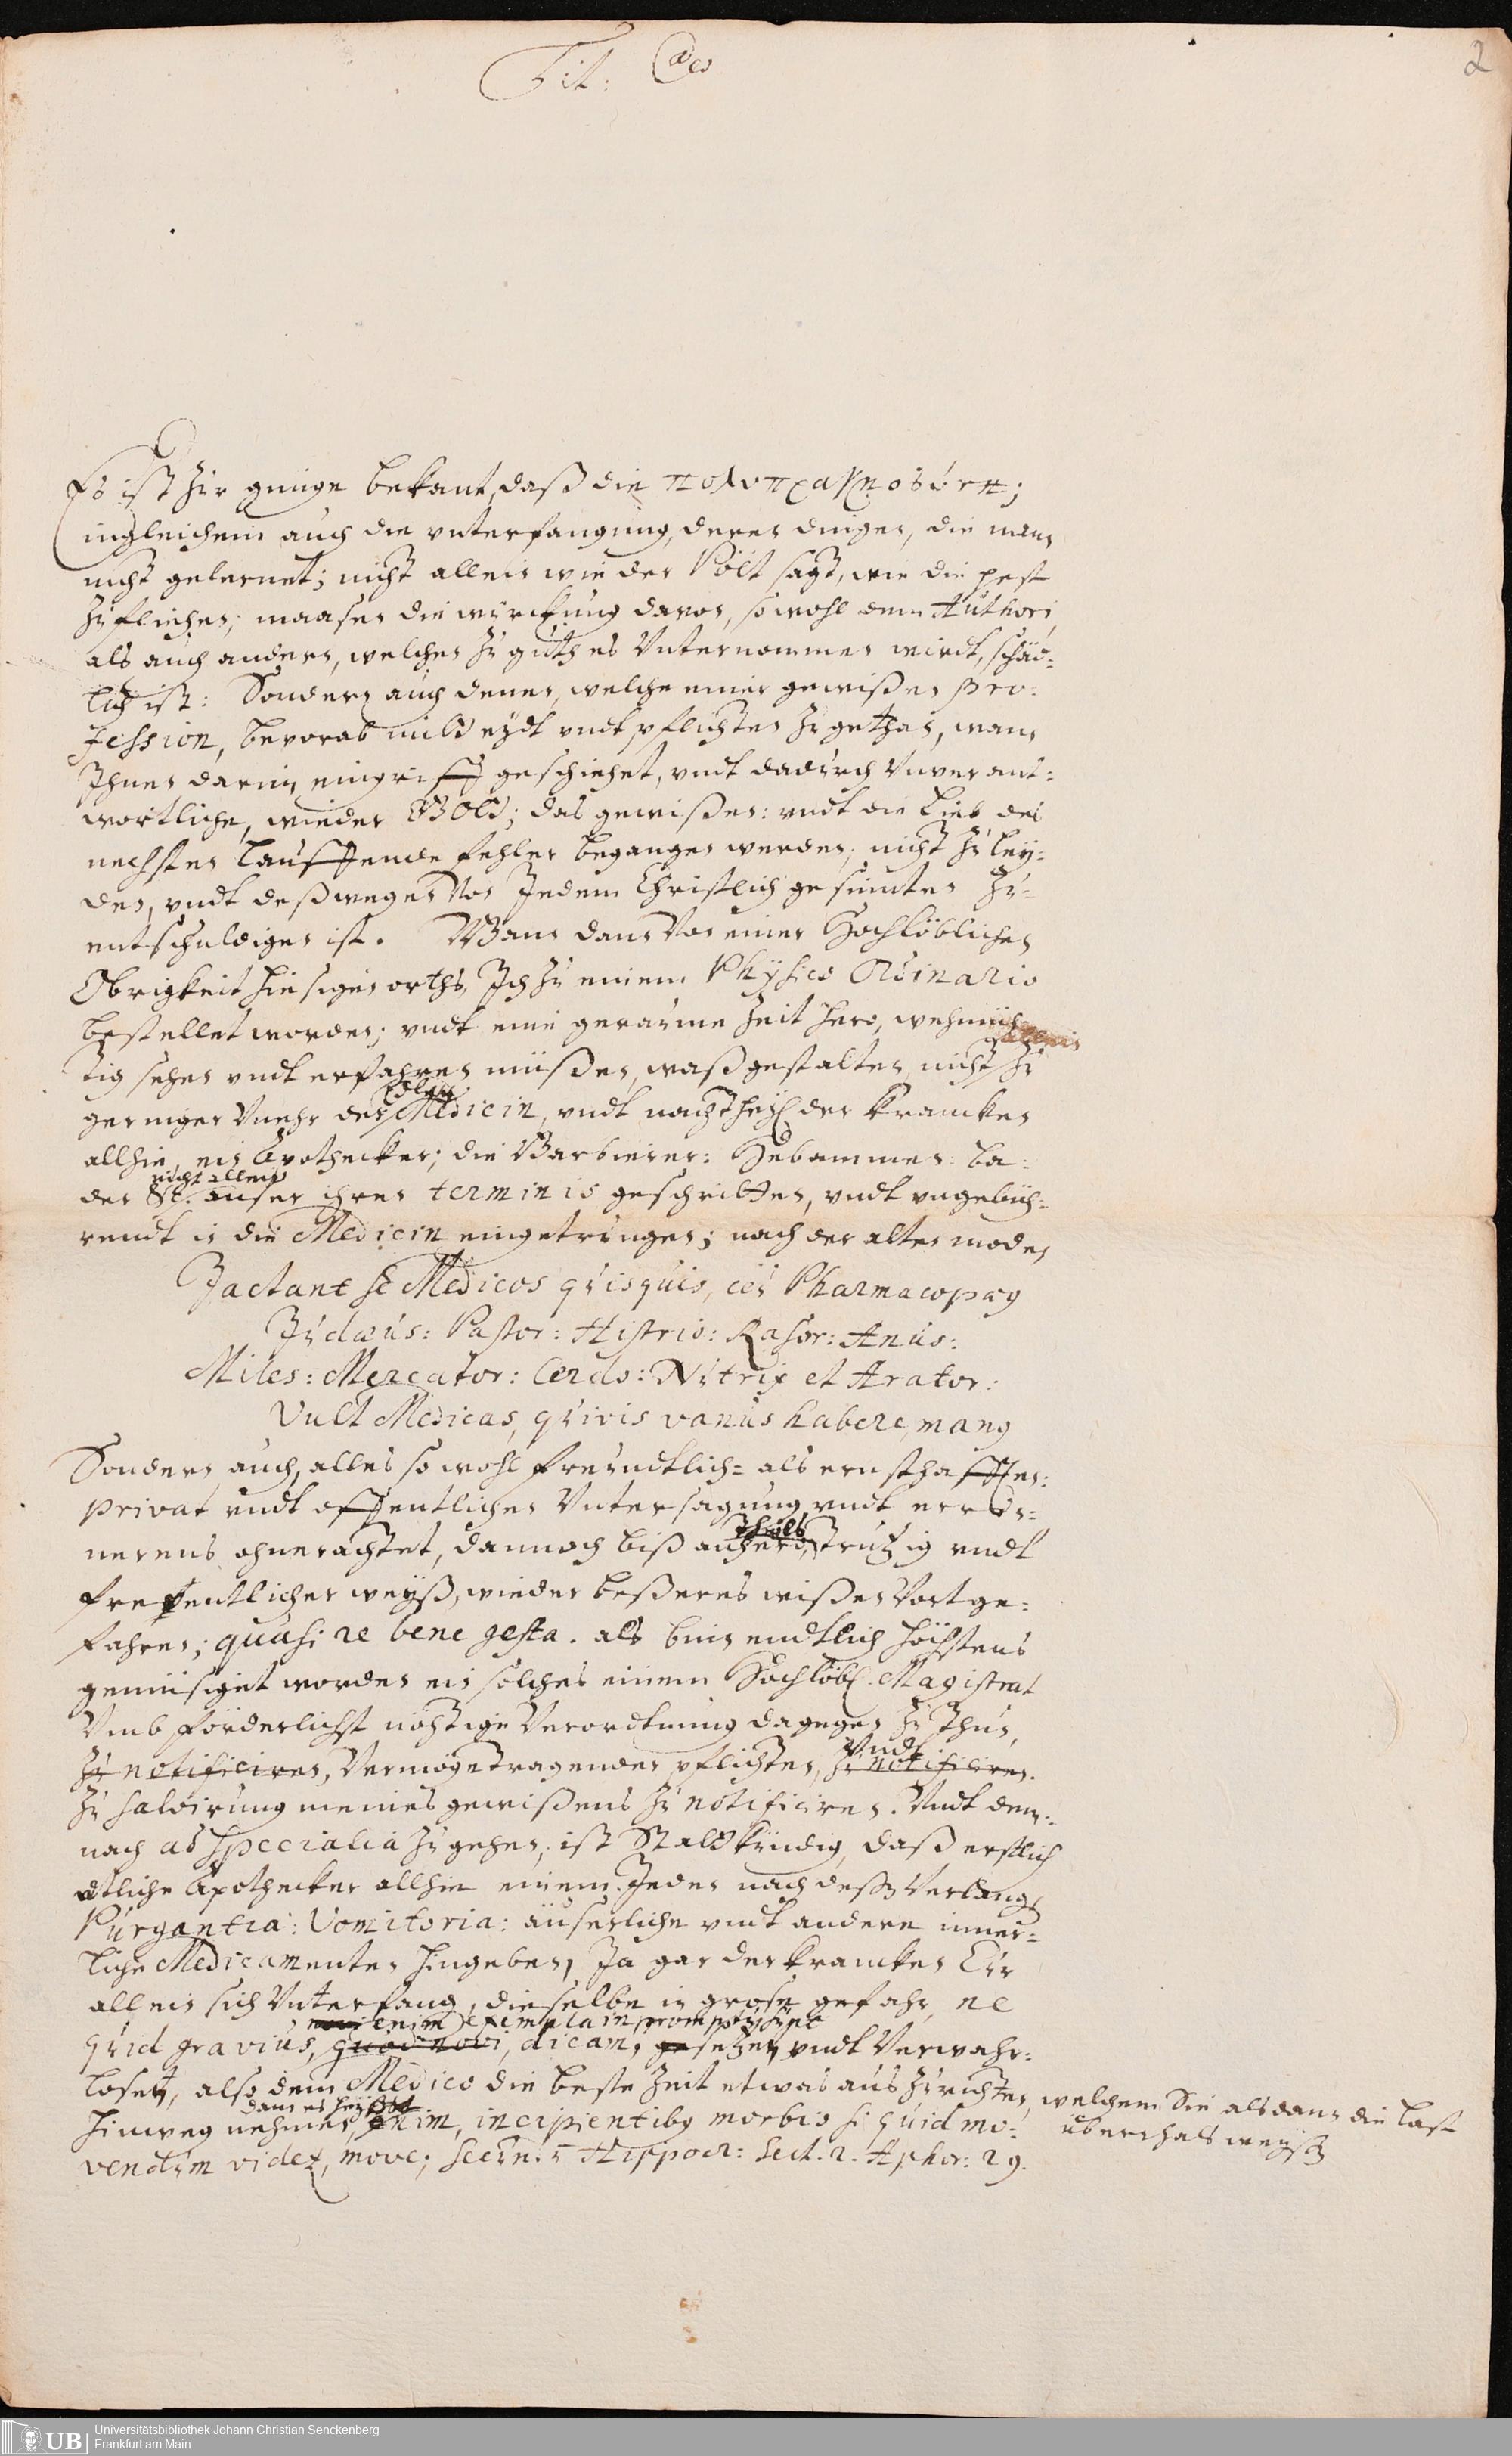 2
Tit:
Es ist Zur gnüge bekant, daß die πολυπραγμοσύνη;
ingleichem auch die unterfangung, deren dingen, die mann
nicht gelernet; nicht allein wie der Pölt sagt, wie die pest
Zu fliehen; maasen die würckung davon, so wohl dem Authori,
als auch andern, welchen Zu guth es Unternommen wirdt, schäd-
lich ist: Sondern auch denen, welche einer gewißen Pro-
fession, bevorab mitt eydt undt pflichten Zugethan, wann
Ihnen darin eingriff geschiehet, undt dadurch Unverant-
wortliche, wieder GOtt; das gewißen: undt die Lieb des
nechsten lauffende fehler begangen werden; nicht Zu ley-
den, undt deßwegen Von Jedem Christlich gesinnten Zu-
entschuldigen ist. Wann dann Von einer Hochlöblichen
Obrigkeit hiesigen orths, Ich Zu einem Physico Ordinario
bestellet worden; undt eine geraume Zeit hero, wehmüh-
tig sehen undt erfahren müßen, waßgestalten, nicht Zu
edlen
geringer Unehr der Medicin, undt nachtheil der Krancken
allhie, ein Apothecker; die Barbierer: Hebammen: Ba-
nicht allein
der &c. auser ihren terminis geschritten, undt ungebüh-
rendt in die Medicin eingetrungen; nach der alten moden
Jactant se Medicos quisquis, ceu Pharmacopaeus
Judaeus: Pastor: Histrio: Rasor: Anus:
Miles: Mercator: Cerdo: Nutrix et Arator:
Vult Medicas, quivis vanus habere, manus
Sondern auch, alles so wohl freundtlich- als ernsthafften:
privat undt offentlichen Untersagung undt erin-
nerens ohnerachtet, dannoch biß anhero, trutzig undt
freventlicher weyß, wieder beßeres wißen Vortge-
fahren; quasi re bene gesta. als bin endtlich höchstens
gemüsiget worden ein solches einem Hochlöbl. Magistrat
Umb förderlichst nöhtige Verordtnung dagegen Zu thun,
Zu notificiren, Vermöge tragenden pflichten, Zu notificiren.
undt
Zu salvirung meines gewißens Zu notificiren. Undt dem-
nach ad specialia Zu gehen, ist Stattkündig, daß erstlich
etliche Apothecker allhie einem Jeden nach deßen Verlangen
Purgantia: Vomitoria: äuserliche undt andere inner-
liche Medicamenten hingeben, Ja gar der krancken Cur
allein sich Unterfang, dieselbe in grose gefahr, ne
enim exempla in promptu
quid gravius, quod novi, dicam, setzen, undt Verwahr-
losen, also dem Medico die beste Zeit etwas auszurichten, welchem Sie alsdann die last
überhals
dann es heyst
hinweg nehmen, enim, incipientibus morbis si quid mo-
vendum videtur, move; secun. Hippocr: Sect. 2. Aphor: 29.
UB Universitätsbibliothek Johann Christian Senckenberg
Frankfurt am Main